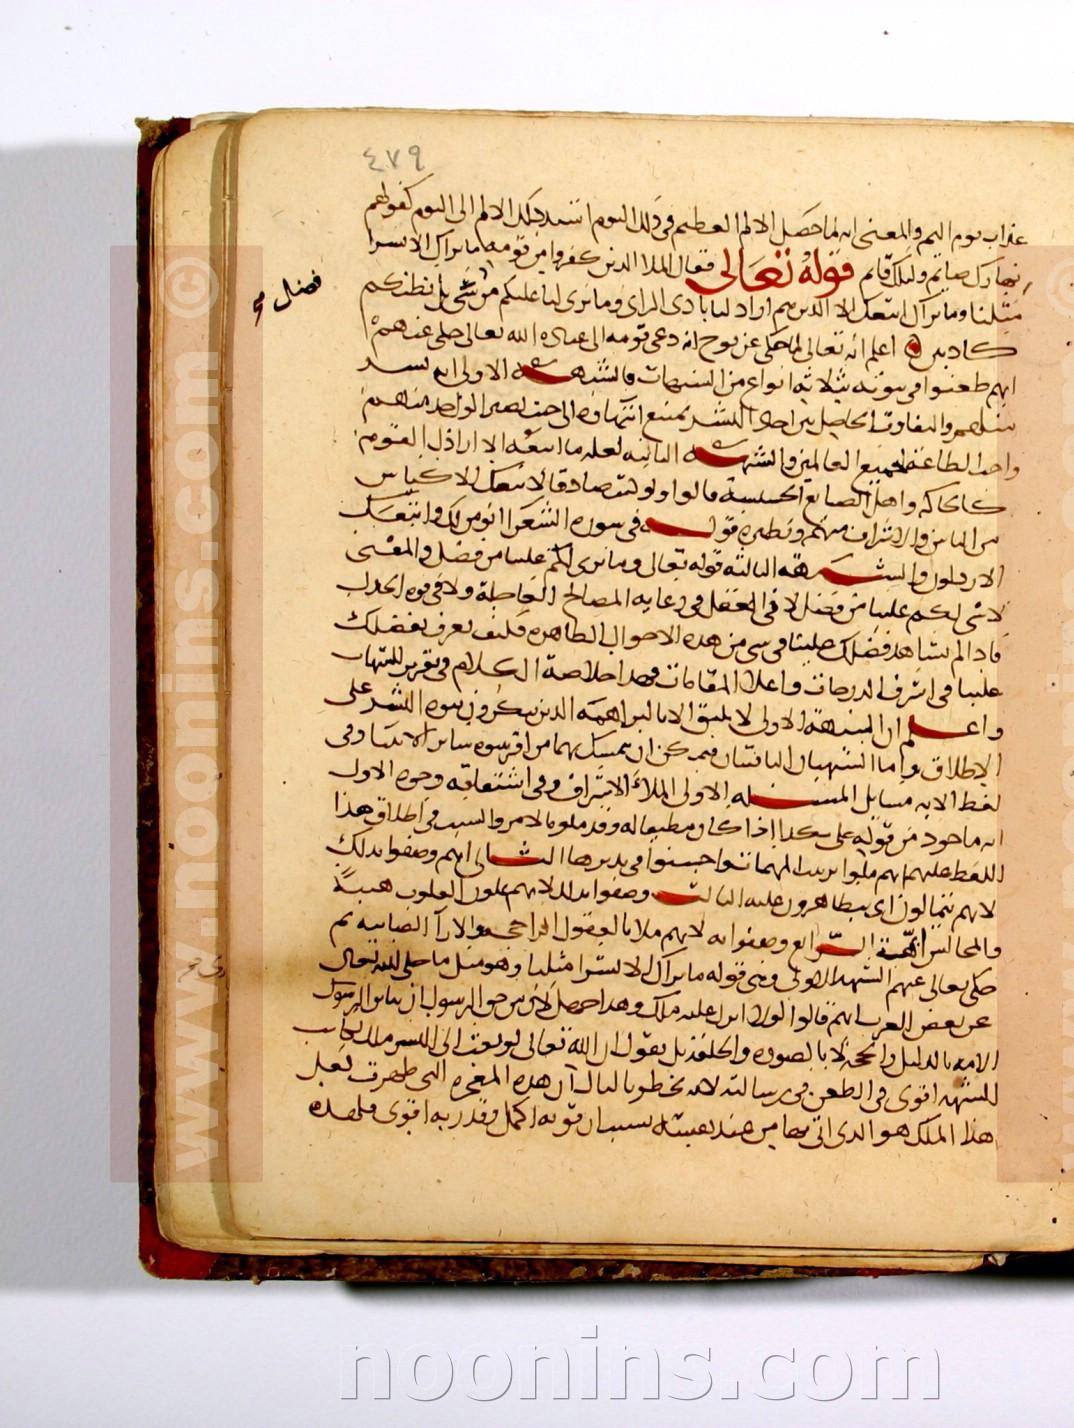 ٤٧٩
عذاب يوم اليم والمعنى انه لما حصل الالم العظيم في ذلك اليوم اسند ذلك الالم الى اليوم كقولهم
نهارك صايم وليلك قايم قوله تعالى فقال الملا الذين كفروا من قومه ما نراك الا بشرا
فضل
مثلنا وما نراك اتبعك الا الذين هم اراذلنا بادى الراى وما نرى لنا عليكم من بل نظنكم
كاذبين اعلم انه تعالى لما حكى عن نوح انه دعى قومه الى عباده الله تعالى حكى عنهم
انهم طعنوا في نبوته بثلاثه انواع من الشبهات فالشبهه الاولى انه بشر
مثلهم والتفاوت الحاصل بين احاد البشر يمتنع انتهاوه الى حيث يصير الواحد منهم
واجب الطاعة لجميع العالمين والشبهه الثانيه لعله ما اتبعه الا اراذل القوم
كالحاكه واهل الصنايع الخسيسة قالوا ولو كنت صادقا لاتبعك الاكياس
من الناس والاشراف منهم ونظيره قوله في سوره الشعرا انومن لك واتبعك
الارذلون والشبهة الثالثه قوله تعالى وما نرى لكم علينا من فضل والمعنى
لا نرى لكم علينا من فضل لا في العقل ولا في رعايه المصالح العاجلة ولا في قوه الجدل
فاذا لم نشاهد فضلك علينا في شي من هذه الاحوال الظاهره فكيف نعرف بفضلك
علينا في اشرف الدرجات واعلا المقامات فهذا خلاصة الكلام في تقرير الشبهات
واعلم ان الشبهة الاولى لا يليق الا بالبراهمه الذين ينكرون نبوه البشر على
الاطلاق واما الشبهتان الباقيتان فيمكن ان يتمسك بهما من اقر بنبوه ساير الانبيا وفي
لفظ الايه مسايل المسئله الاولى الملاء الاشراف وفي اشتقاقه وجوه الاول
انه ماخوذ من قوله ملى بكذا اذا كان مطيقا له وقد ملوا بالامر والسبب في اطلاق هذا
اللفظ عليهم انهم ملوا بترتيب المهمات واحسنوا في تدبيرها الثانى انهم وصفوا بذلك
لانهم يتمالون اى يتظاهرون عليه الثالث وصفوا بذلك لانهم يملون القلوب هيبة
والمجالس ابهة الرابع وصفوا به لانهم ملا بالعقول الراجحه والارآ الصايبه ثم
حكى تعالى عنهم الشبهة الاولى وهى قوله ما نراك الا بشرا مثلنا وهو مثل ما حكى الله تعالى
عن بعض العرب انهم قالوا لولا انزل عليه ملك وهذا جهل لان من حق الرسول ان يباشر
الامه بالدليل والحجة لا بالصوره والخلقة بل نقول ان الله تعالى لو بعث الى البشر ملكا لكانت
الشبهه اقوى في الطعن في رسالته لانه يخطر بالبال ان هذه المعجزه التى ظهرت لعل
هذا الملك هو الذى اتى بها من عند نفسه بسبب ان قوته اكمل وقدرته اقوى فلهذه
© www.noonins.com
noonins.com